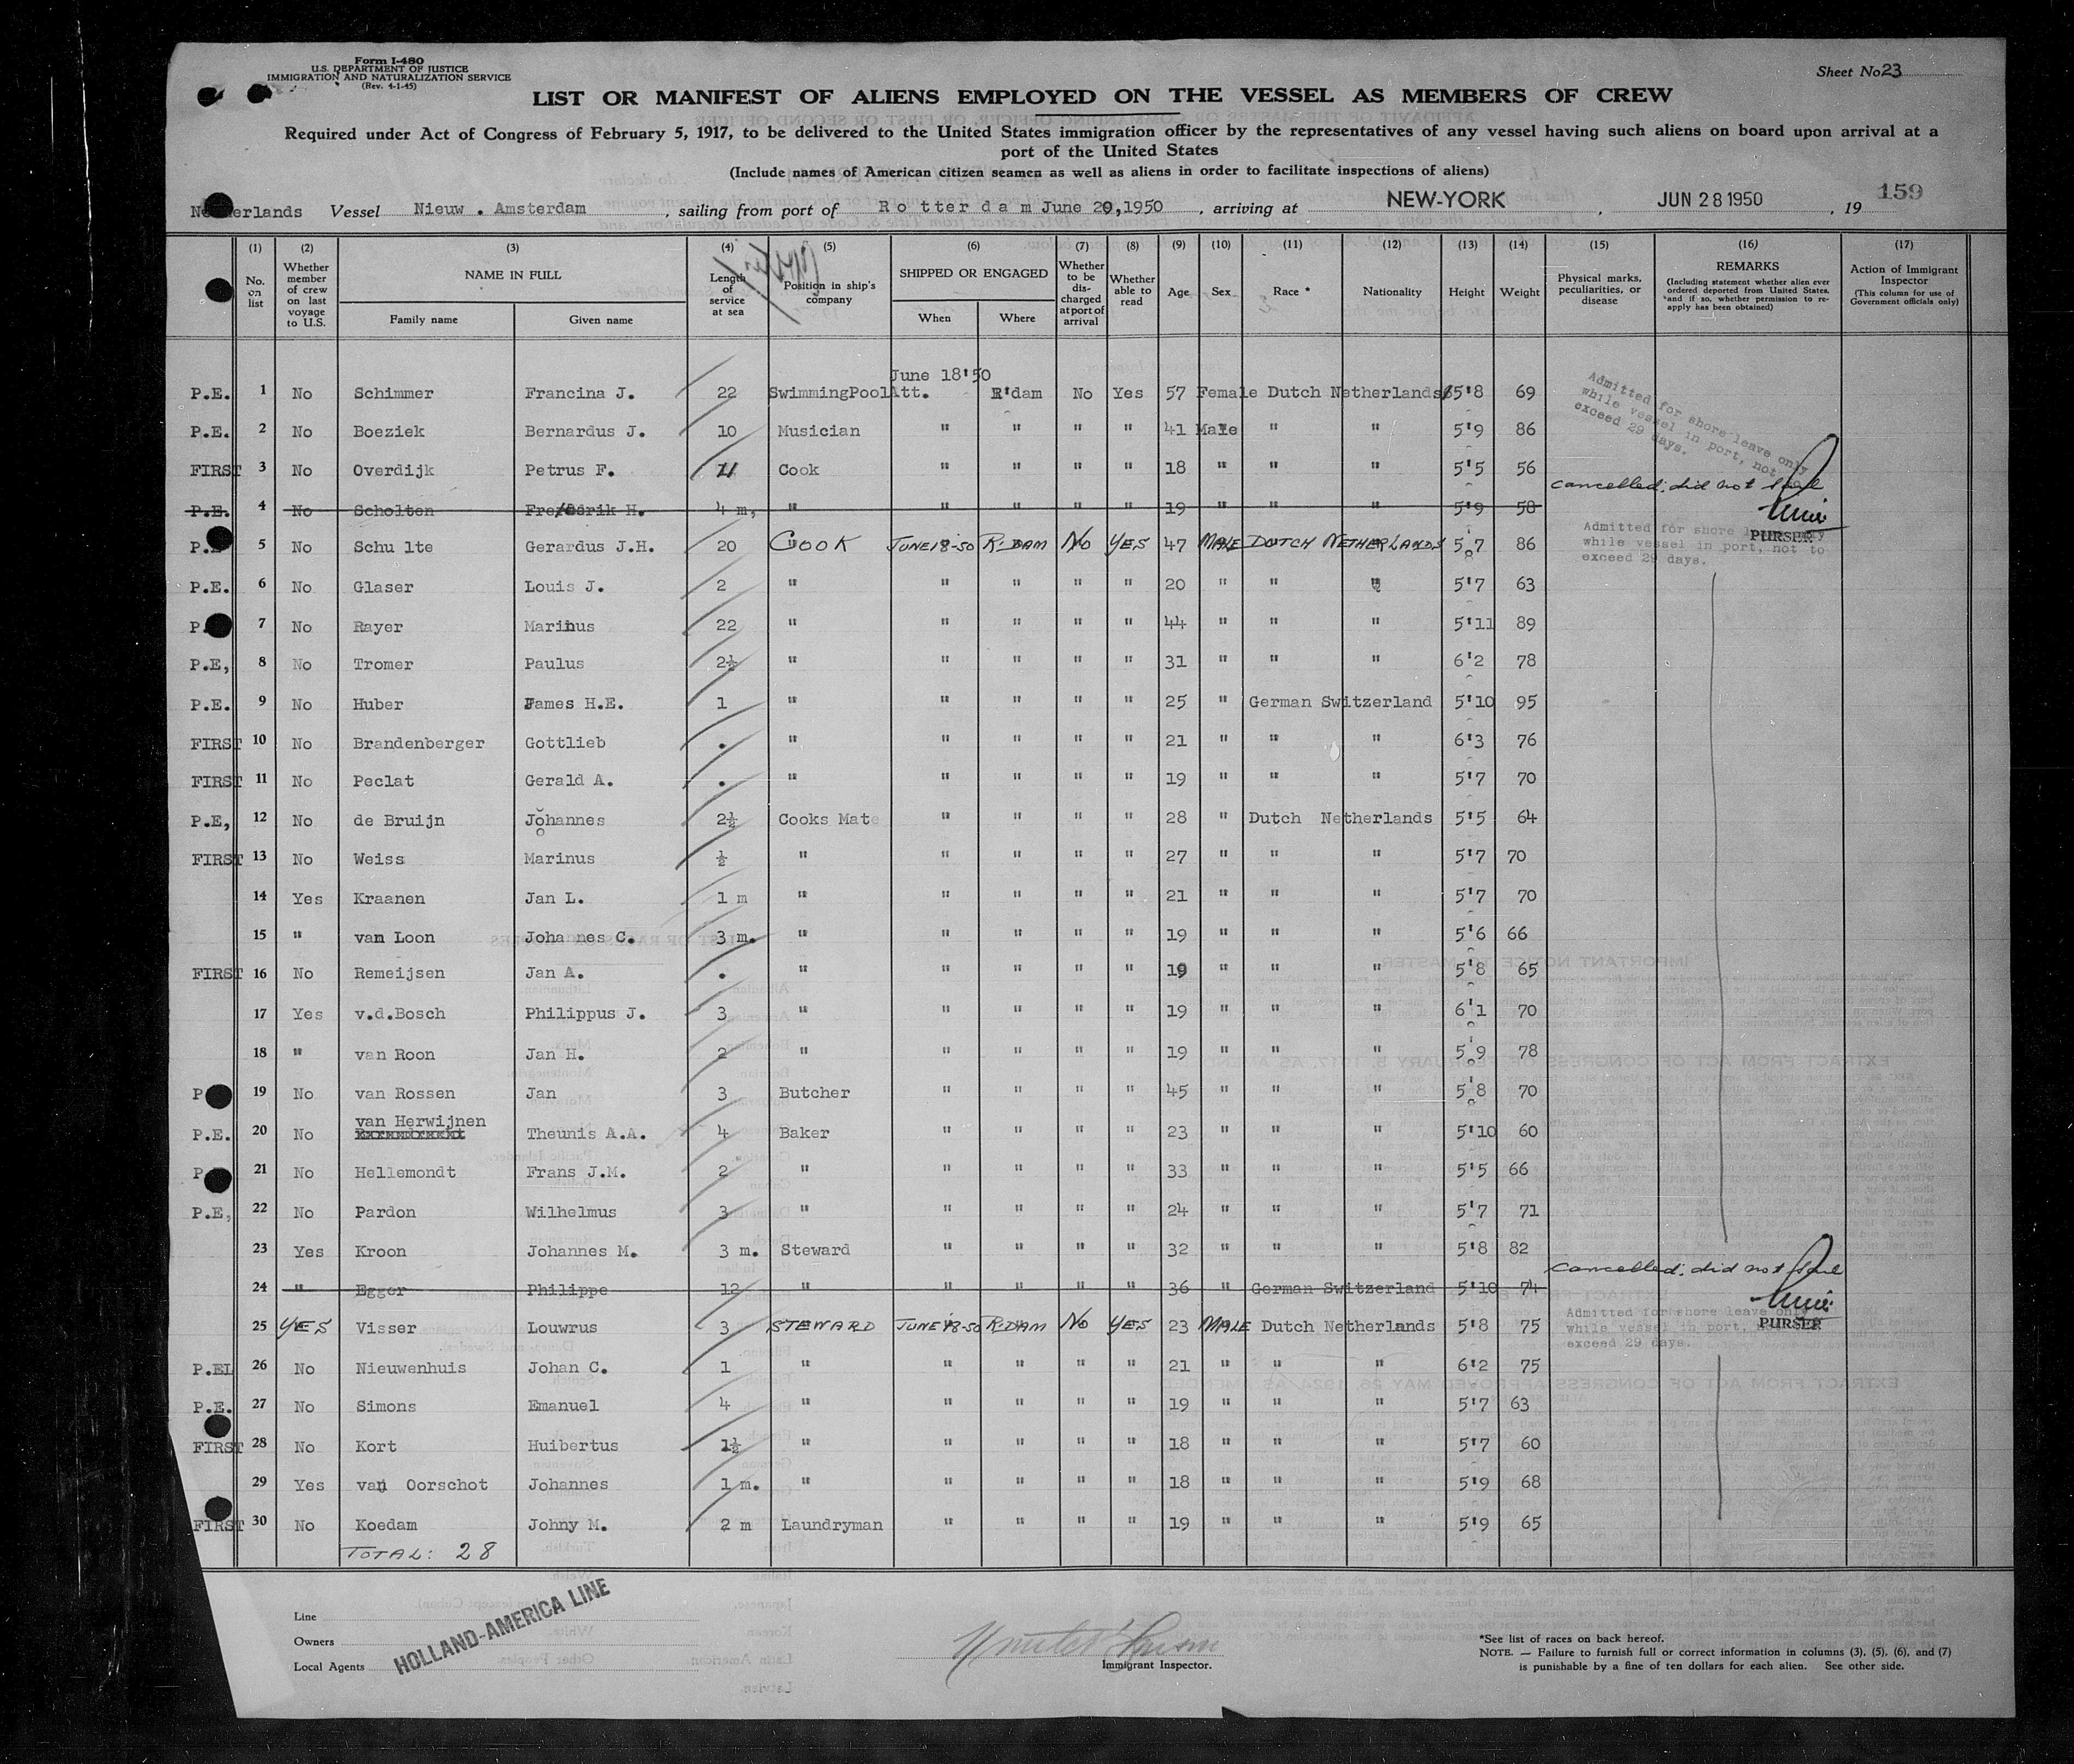 Form I-480
U.S. DEPARTMENT OF JUSTICE
IMMIGRATION AND NATURALIZATION SERVICE
(Rev. 4-1-45)
Sheet No 23
LIST OR MANIFEST OF ALIENS EMPLOYED ON THE VESSEL AS MEMBERS OF CREW
Required under Act of Congress of February 5, 1917, to be delivered to the United States immigration officer by the representatives of any vessel having such aliens on board upon arrival at a
port of the United States
(Include names of American citizen seamen as well as aliens in order to facilitate inspections of aliens)
159
Netherlands Vessel Nieuw . Amsterdam , sailing from port of Rotterdam June 20,1950 , arriving at NEW-YORK , JUN 28 1950 , 19
(1) (2) (3) (4) (5) (6) (7) (8) (9) (10) (11) (12) (13) (14) (15) (16) (17)
No. on list
Whether member of crew on last voyage to U.S.
NAME IN FULL
Family name
Given name
Length of service at sea
Position in ship's company
SHIPPED OR ENGAGED
When
Where
Whether to be discharged at port of arrival
Whether able to read
Age
Sex
Race *
Nationality
Height
Weight
Physical marks, peculiarities, or disease
REMARKS
(Including statement whether alien ever ordered deported from United States, and if so, whether permission to reapply has been obtained)
Action of Immigrant Inspector
(This column for use of Government officials only)
June 18'50
P.E. 1 No Schimmer Francina J. 22 SwimmingPoolAtt. R'dam No Yes 57 Female Dutch Netherlands 5'8 69
P.E. 2 No Boeziek Bernardus J. 10 Musician " " " " 41 Male " " 5'9 86
FIRST 3 No Overdijk Petrus F. Cook " " " " 18 " " " 5'5 56
Admitted for shore leave only
while vessel in port, not
exceed 29 days.
cancelled; did not sail
P.E. 4 No Scholten Frederik H. 4 m, " " " " " 19 " " " 5'9 58
PURSER
P.E. 5 No Schulte Gerardus J.H. 20 COOK JUNE 18-50 R-DAM NO YES 47 MALE DUTCH NETHERLANDS 5'7 86
Admitted for shore leave only
while vessel in port, not to
exceed 29 days.
P.E. 6 No Glaser Louis J. 2 " " " " " 20 " " " 5'7 63
P. 7 No Rayer Marinus 22 " " " " " 44 " " " 5'11 89
P.E, 8 No Tromer Paulus 2½ " " " " " 31 " " " 6'2 78
P.E. 9 No Huber James H.E. 1 " " " " " 25 " German Switzerland 5'10 95
FIRST 10 No Brandenberger Gottlieb . " " " " " 21 " " " 6'3 76
FIRST 11 No Peclat Gerald A. . " " " " " 19 " " " 5'7 70
P.E, 12 No de Bruijn Johannes 2½ Cooks Mate " " " " 28 " Dutch Netherlands 5'5 64
FIRST 13 No Weiss Marinus ½ " " " " " 27 " " " 5'7 70
14 Yes Kraanen Jan L. 1 m " " " " " 21 " " " 5'7 70
15 " van Loon Joha nes C. 3 m. " " " " " 19 " " " 5'6 66
FIRST 16 No Remeijsen Jan A. . " " " " " 19 " " " 5'8 65
17 Yes v.d.Bosch Philippus J. 3 " " " " " 19 " " " 6'1 70
18 " van Roon Jan H. 2 " " " " " 19 " " " 5'9 78
P 19 No van Rossen Jan 3 Butcher " " " " 45 " " " 5'8 70
P.E. 20 No van Herwijnen Theunis A.A. 4 Baker " " " " 23 " " " 5'10 60
P 21 No Hellemondt Frans J.M. 2 " " " " " 33 " " " 5'5 66
P.E, 22 No Pardon Wilhelmus 3 " " " " " 24 " " " 5'7 71
23 Yes Kroon Johannes M. 3 m. Steward " " " " 32 " " " 5'8 82
cancelled; did not sail
24 " Egger Philippe 12 " " " " " 36 " German Switzerland 5'10 74
PURSER
25 YES Visser Louwrus 3 STEWARD JUNE 18-50 R-DAM NO YES 23 MALE Dutch Netherlands 5'8 75
Admitted for shore leave only
while vessel in port,
exceed 29 days.
P.E. 26 No Nieuwenhuis Johan C. 1 " " " " " 21 " " " 6'2 75
P.E. 27 No Simons Emanuel 4 " " " " " 19 " " " 5'7 63
FIRST 28 No Kort Huibertus 1½ " " " " " 18 " " " 5'7 60
29 Yes van Oorschot Johannes 1 m. " " " " " 18 " " " 5'9 68
FIRST 30 No Koedam Johny M. 2 m Laundryman " " " " 19 " " " 5'9 65
TOTAL: 28
Line
Owners
Local Agents
HOLLAND-AMERICA LINE
Immigrant Inspector.
*See list of races on back hereof.
NOTE. — Failure to furnish full or correct information in columns (3), (5), (6), and (7)
is punishable by a fine of ten dollars for each alien. See other side.